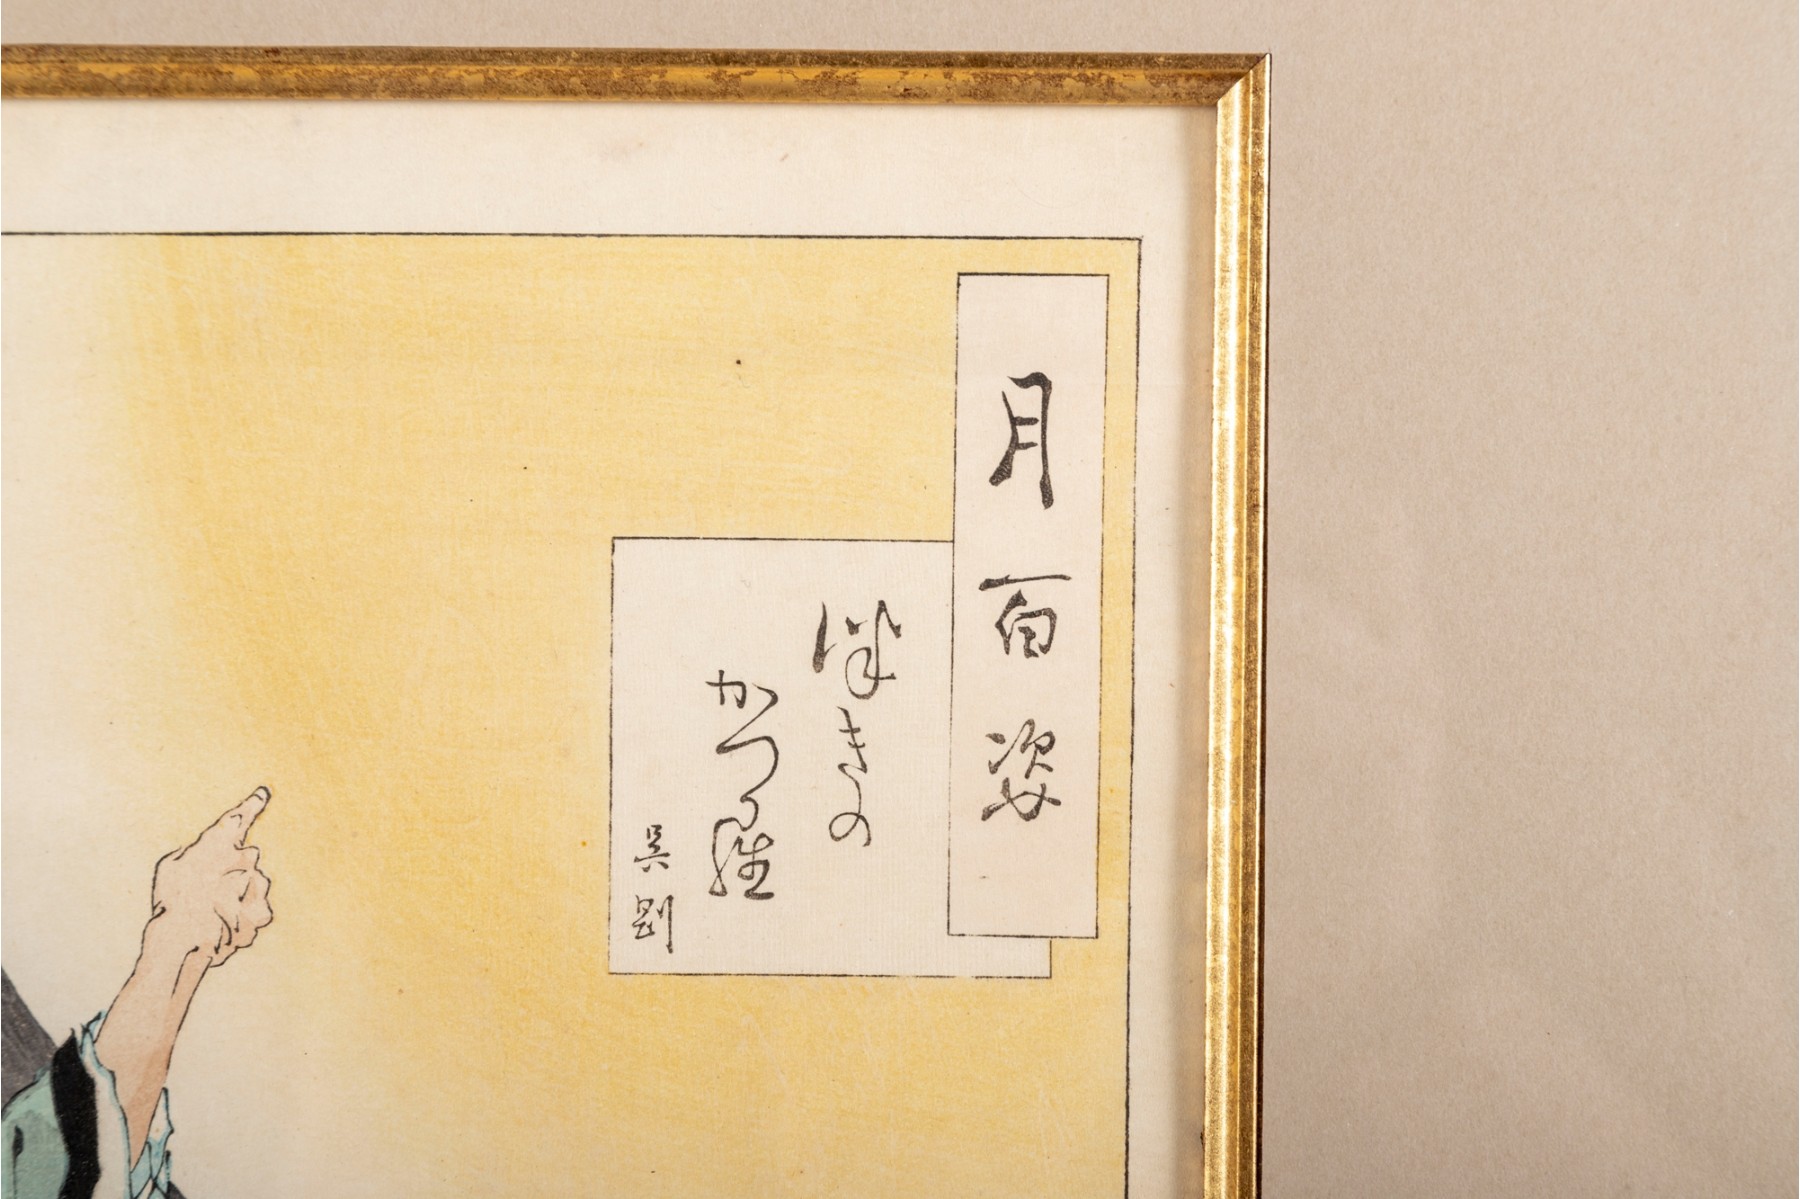 月百姿
きの
かつ羅
呉剛